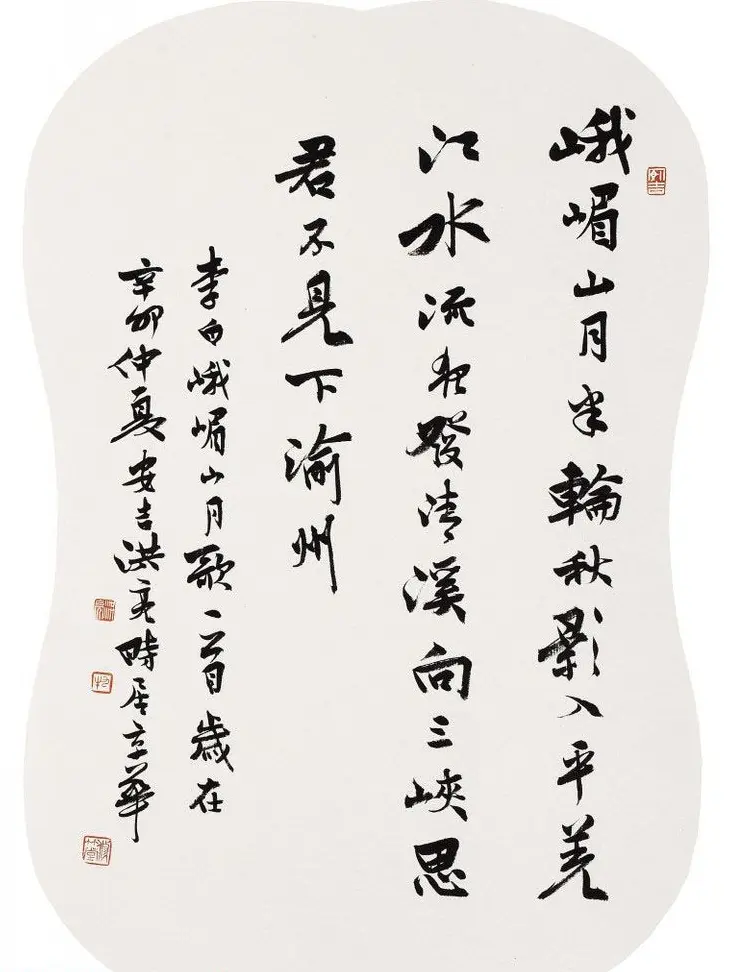 峨嵋山月半輪秋影入平羌
江水流夜發清溪向三峽思
君不見下渝州
李白峨嵋山月歌一首歲在
辛卯仲夏安吉洪亮時居京華